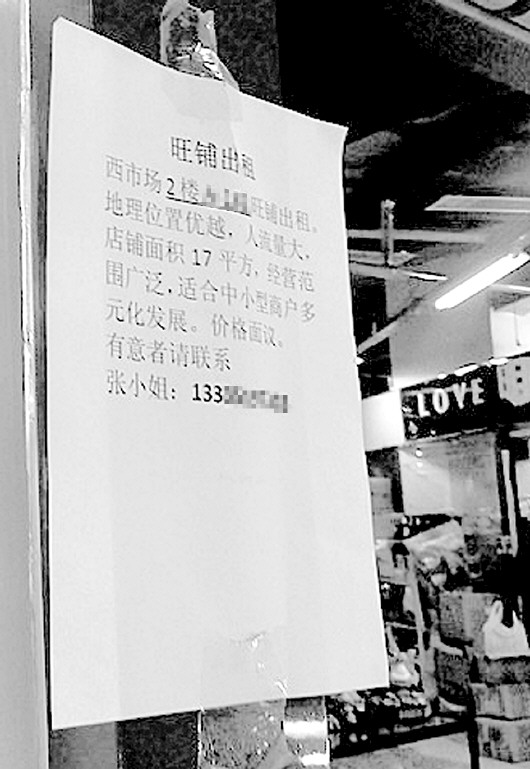 旺铺出租
西市场2楼旺铺出租。
地理位置优越，人流量大，
店铺面积 17 平方，经营范
围广泛，适合中小型商户多
元化发展。价格面议。
有意者请联系
张小姐：133
LOVE